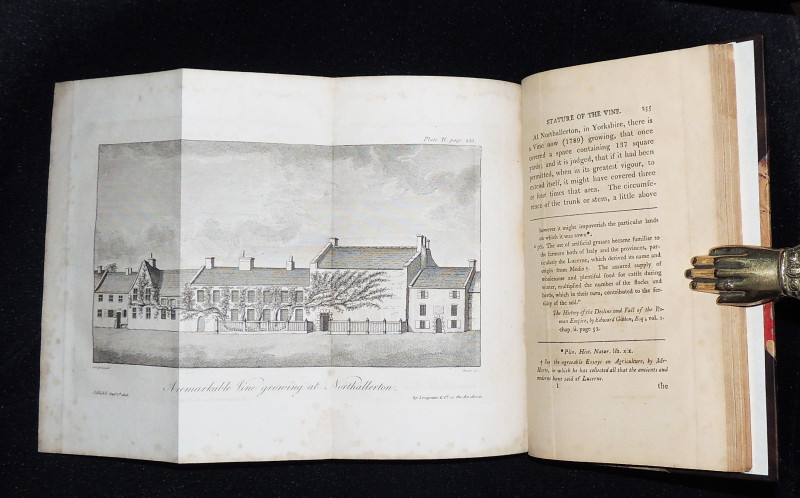 Plate II. page 255.
A remarkable Vine growing at Northallerton.
by Longman & Co.
STATURE OF THE VINE. 255
At Northallerton, in Yorkshire, there is
a Vine now (1789) growing, that once
covered a space containing 137 square
yards; and it is judged, that if it had been
permitted, when in its greatest vigour, to
extend itself, it might have covered three
or four times that area. The circumfe-
rence of the trunk or stem, a little above
however it might impoverish the particular lands
on which it was sown*.
"5. The use of artificial grasses became familiar to
the farmers both of Italy and the provinces, par-
ticularly the Lucerne, which derived its name and
origin from Media †. The assured supply of
wholesome and plentiful food for cattle during
winter, multiplied the number of the flocks and
herds, which in their turn, contributed to the fer-
tility of the soil."
The History of the Decline and Fall of the Ro-
man Empire, by Edward Gibbon, Esq; vol. 1.
chap. ii. page 53.
* Plin. Hist. Natur. lib.
† See the agreeable Essays on Agriculture, by Mr.
Harte, in which he has collected all that the ancients and
moderns have said of Lucerne.
the